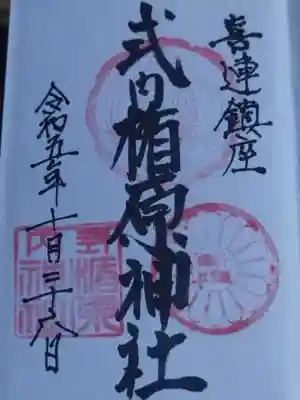 喜連鎮座
式内楯原神社
令和五年十月二十八日